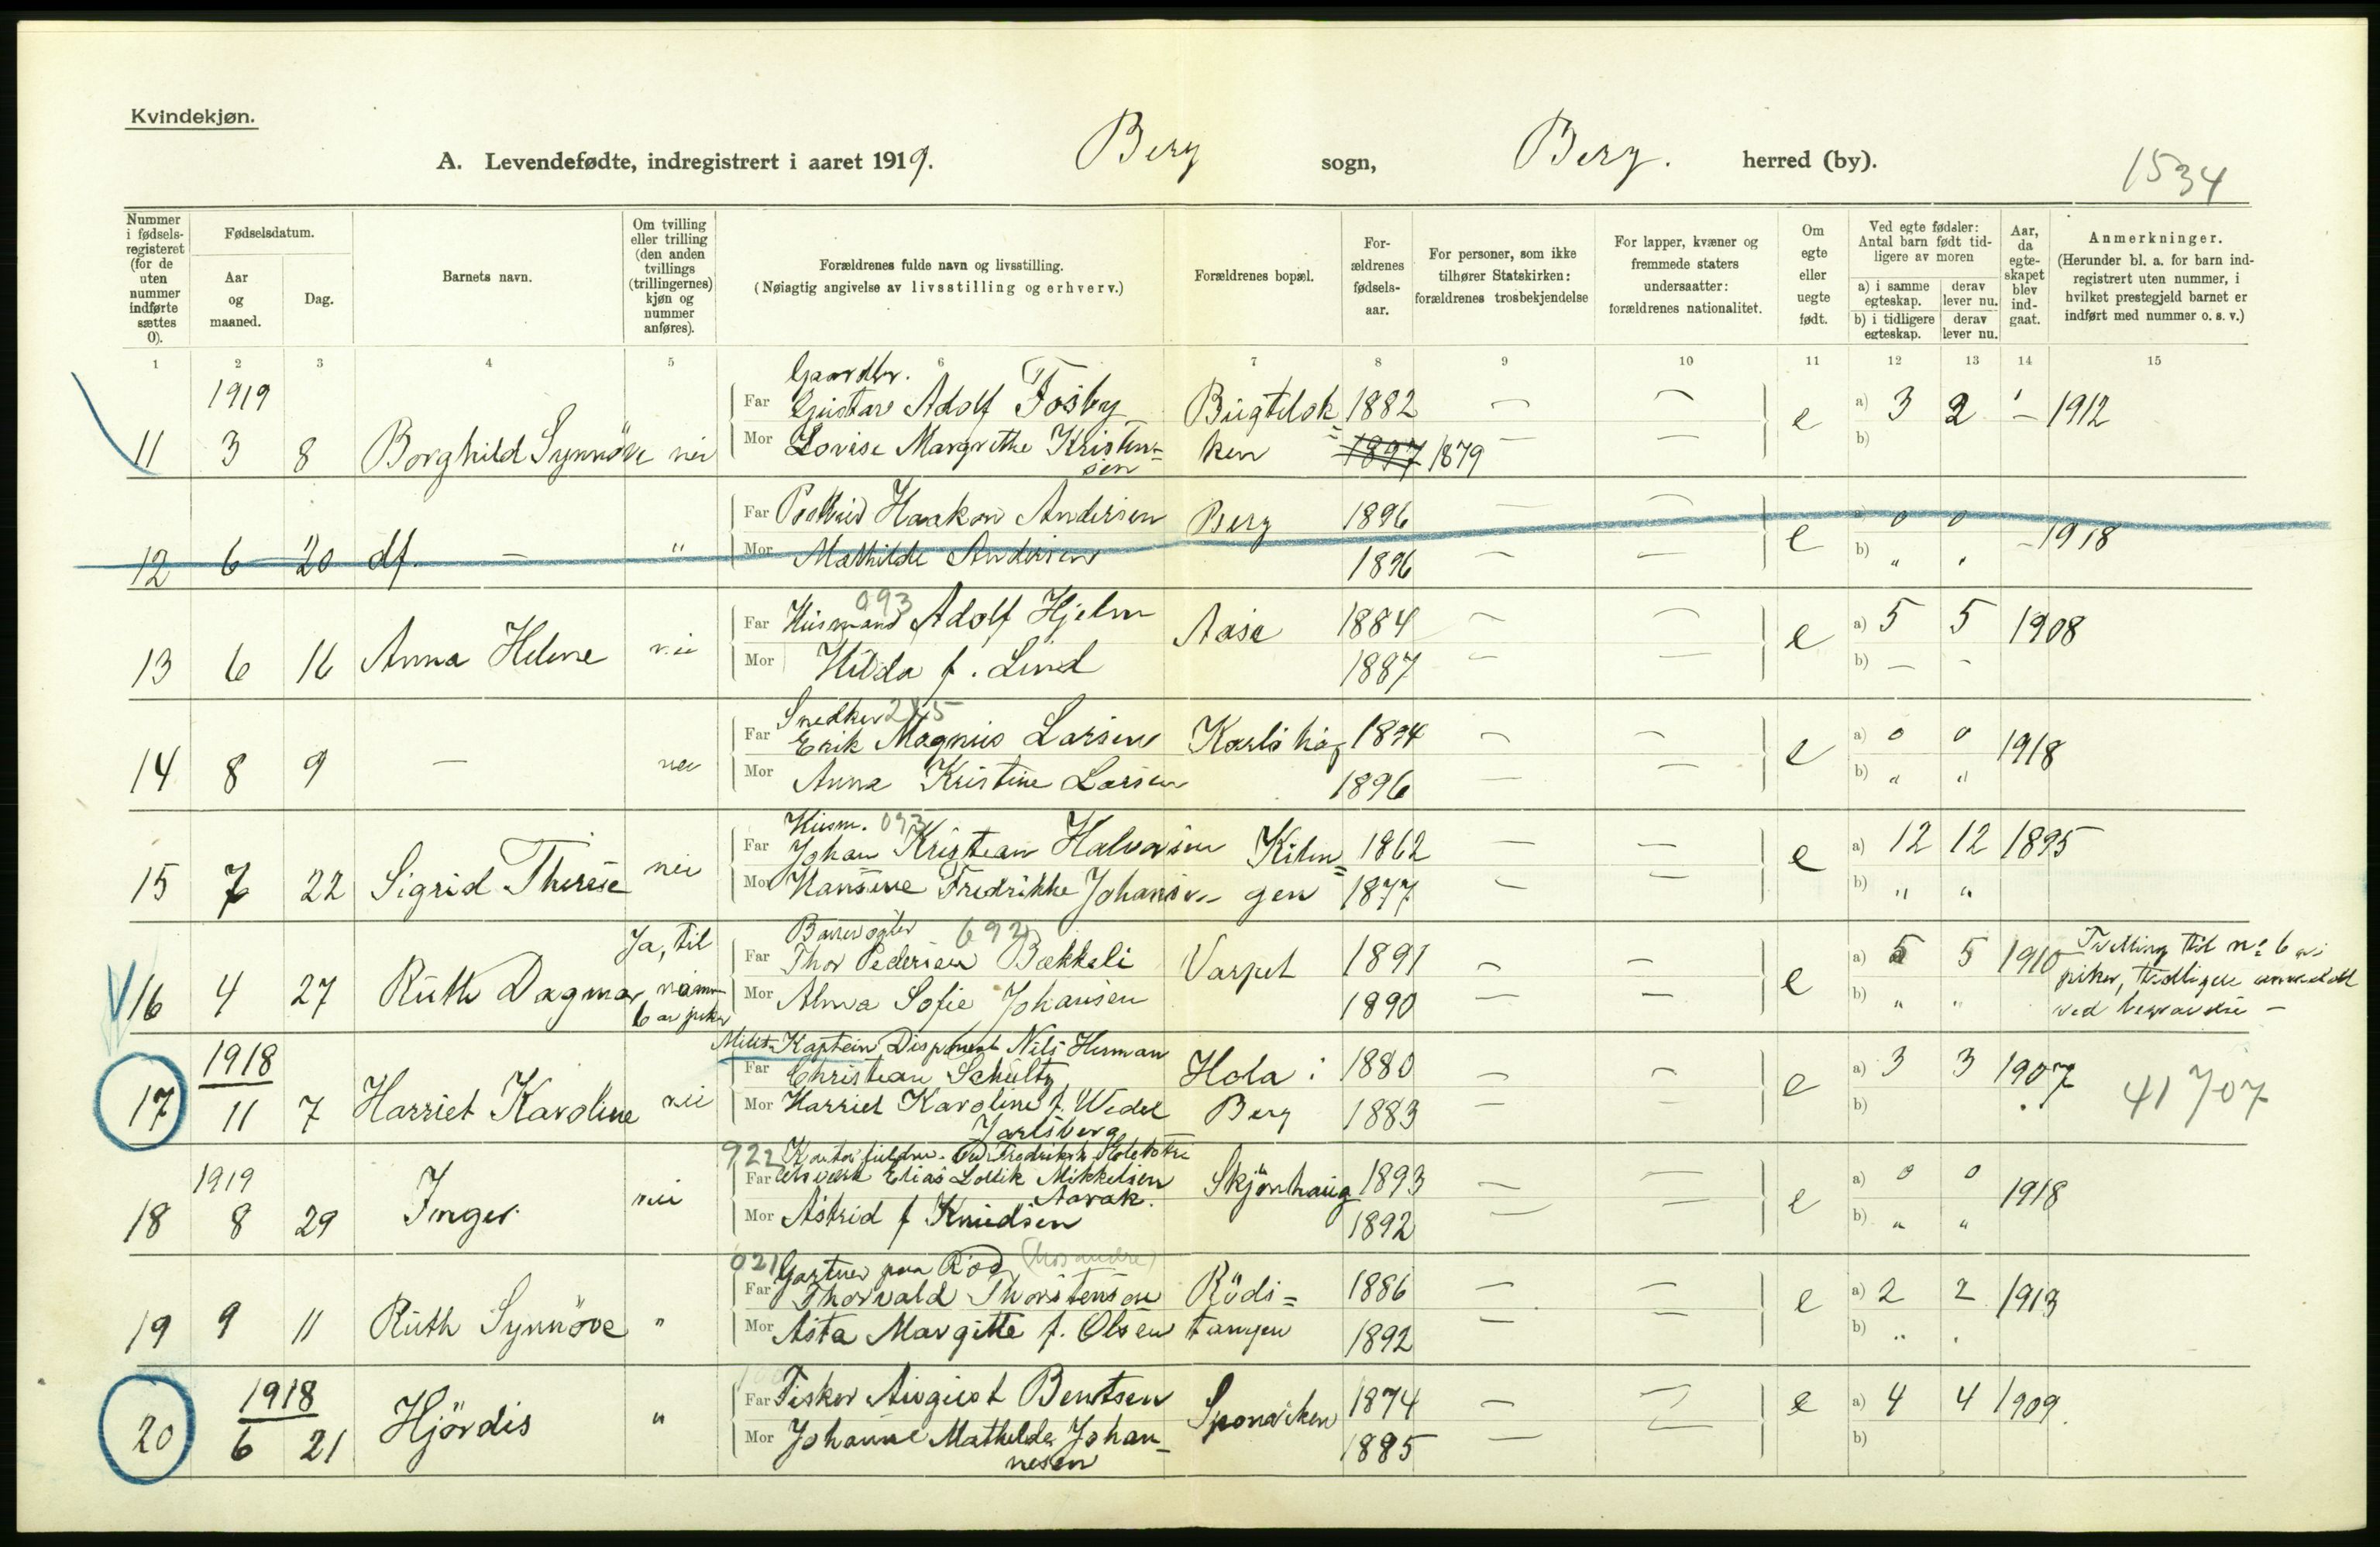 Kvindekjøn.
A. Levendefødte, indregistrert i aaret 1919. Berg sogn, Berg. herred (by).
1534
Nummer i fødselsregisteret (for de uten nummer indførte sættes 0).
Fødselsdatum.
Aar og maaned.
Dag.
Barnets navn.
Om tvilling eller trilling (den anden tvillings (trillingernes) kjøn og nummer anføres).
Forældrenes fulde navn og livsstilling.
(Nøiagtig angivelse av livsstilling og erhverv.)
Forældrenes bopæl.
Forældrenes fødselsaar.
For personer, som ikke tilhører Statskirken: forældrenes trosbekjendelse
For lapper, kvæner og fremmede staters undersaatter: forældrenes nationalitet.
Om egte eller uegte født.
Ved egte fødsler: Antal barn født tidligere av moren
a) i samme egteskap. derav lever nu.
b) i tidligere egteskap. derav lever nu.
Aar, da egteskapet blev indgaat.
Anmerkninger.
(Herunder bl. a. for barn indregistrert uten nummer, i hvilket prestegjeld barnet er indført med nummer o. s. v.)
1 2 3 4 5 6 7 8 9 10 11 12 13 14 15
1919
Gaardbr.
Far Gustav Adolf Fosby 1882 — — a) 3 2 1912
11 3 8 Borghild Synnöve nei Mor Lovise Margrethe Kristensen ken 1897 1879 — — e b)
Far Haakon Andersen Berg 1896 — — 0 0
12 6 20 df. — " Mor Mathilde Andersen 1896 — — e b) " " 1918
093
Far Husmand Adolf Hjelm Aase 1884 — — a) 5 5 1908
13 6 16 Anna Helene nei Mor Hilda f. Lind 1887 — — e b) — -
Snedker 285
Far Erik Magnus Larsen 1894 — — a) 0 0 1918
14 8 9 — nei Mor Anna Kristine Larsen 1896 — — e b) " "
Husm. 093
Far Johan Kristian Halvorsen Kiln= 1862 — — a) 12 12 1895
15 7 22 Sigrid Therese nei Mor Hansine Fredrikke Johansen gen 1877 — — e b) " "
Ja, til 692
Far Thor Pedersen Bækkeli Varpet 1891 — — a) 5 5 1910 Tvilling til no 6 av
16 4 27 Ruth Dagmar 6 av piker Mor Alma Sofie Johansen 1890 — — e b) " " piker, tidligere anmeldt
ved
1918 Kaptein Disponent Nils Herman
Far Christian Schultz Hola i 1880 — — a) 3 3 1907 41707
17 11 7 Harriet Karoline nei Mor Harriet Karoline f. Wedel Jarlsberg Berg 1883 — — e b)
922
1919 Far Elias Mikkelsen Aavak. Skjönhaug 1893 — — a) 0 0 1918
18 8 29 Inger nei Mor Astrid f Knudsen 1892 — — e b) " "
021 Gartner paa Röd (hos andre)
Far Thorvald Thorstenson Rödi= 1886 — — a) 2 2 1913
19 9 11 Ruth Synnöve " Mor Asta Margitte f. Olsen tangen 1892 — — e b) " "
1918 Far Fisker August Berntsen 1874 — — e a) 4 4 1909.
20 6 21 Hjördis " Mor Johanne Mathilde Johannesen 1885 — — b)